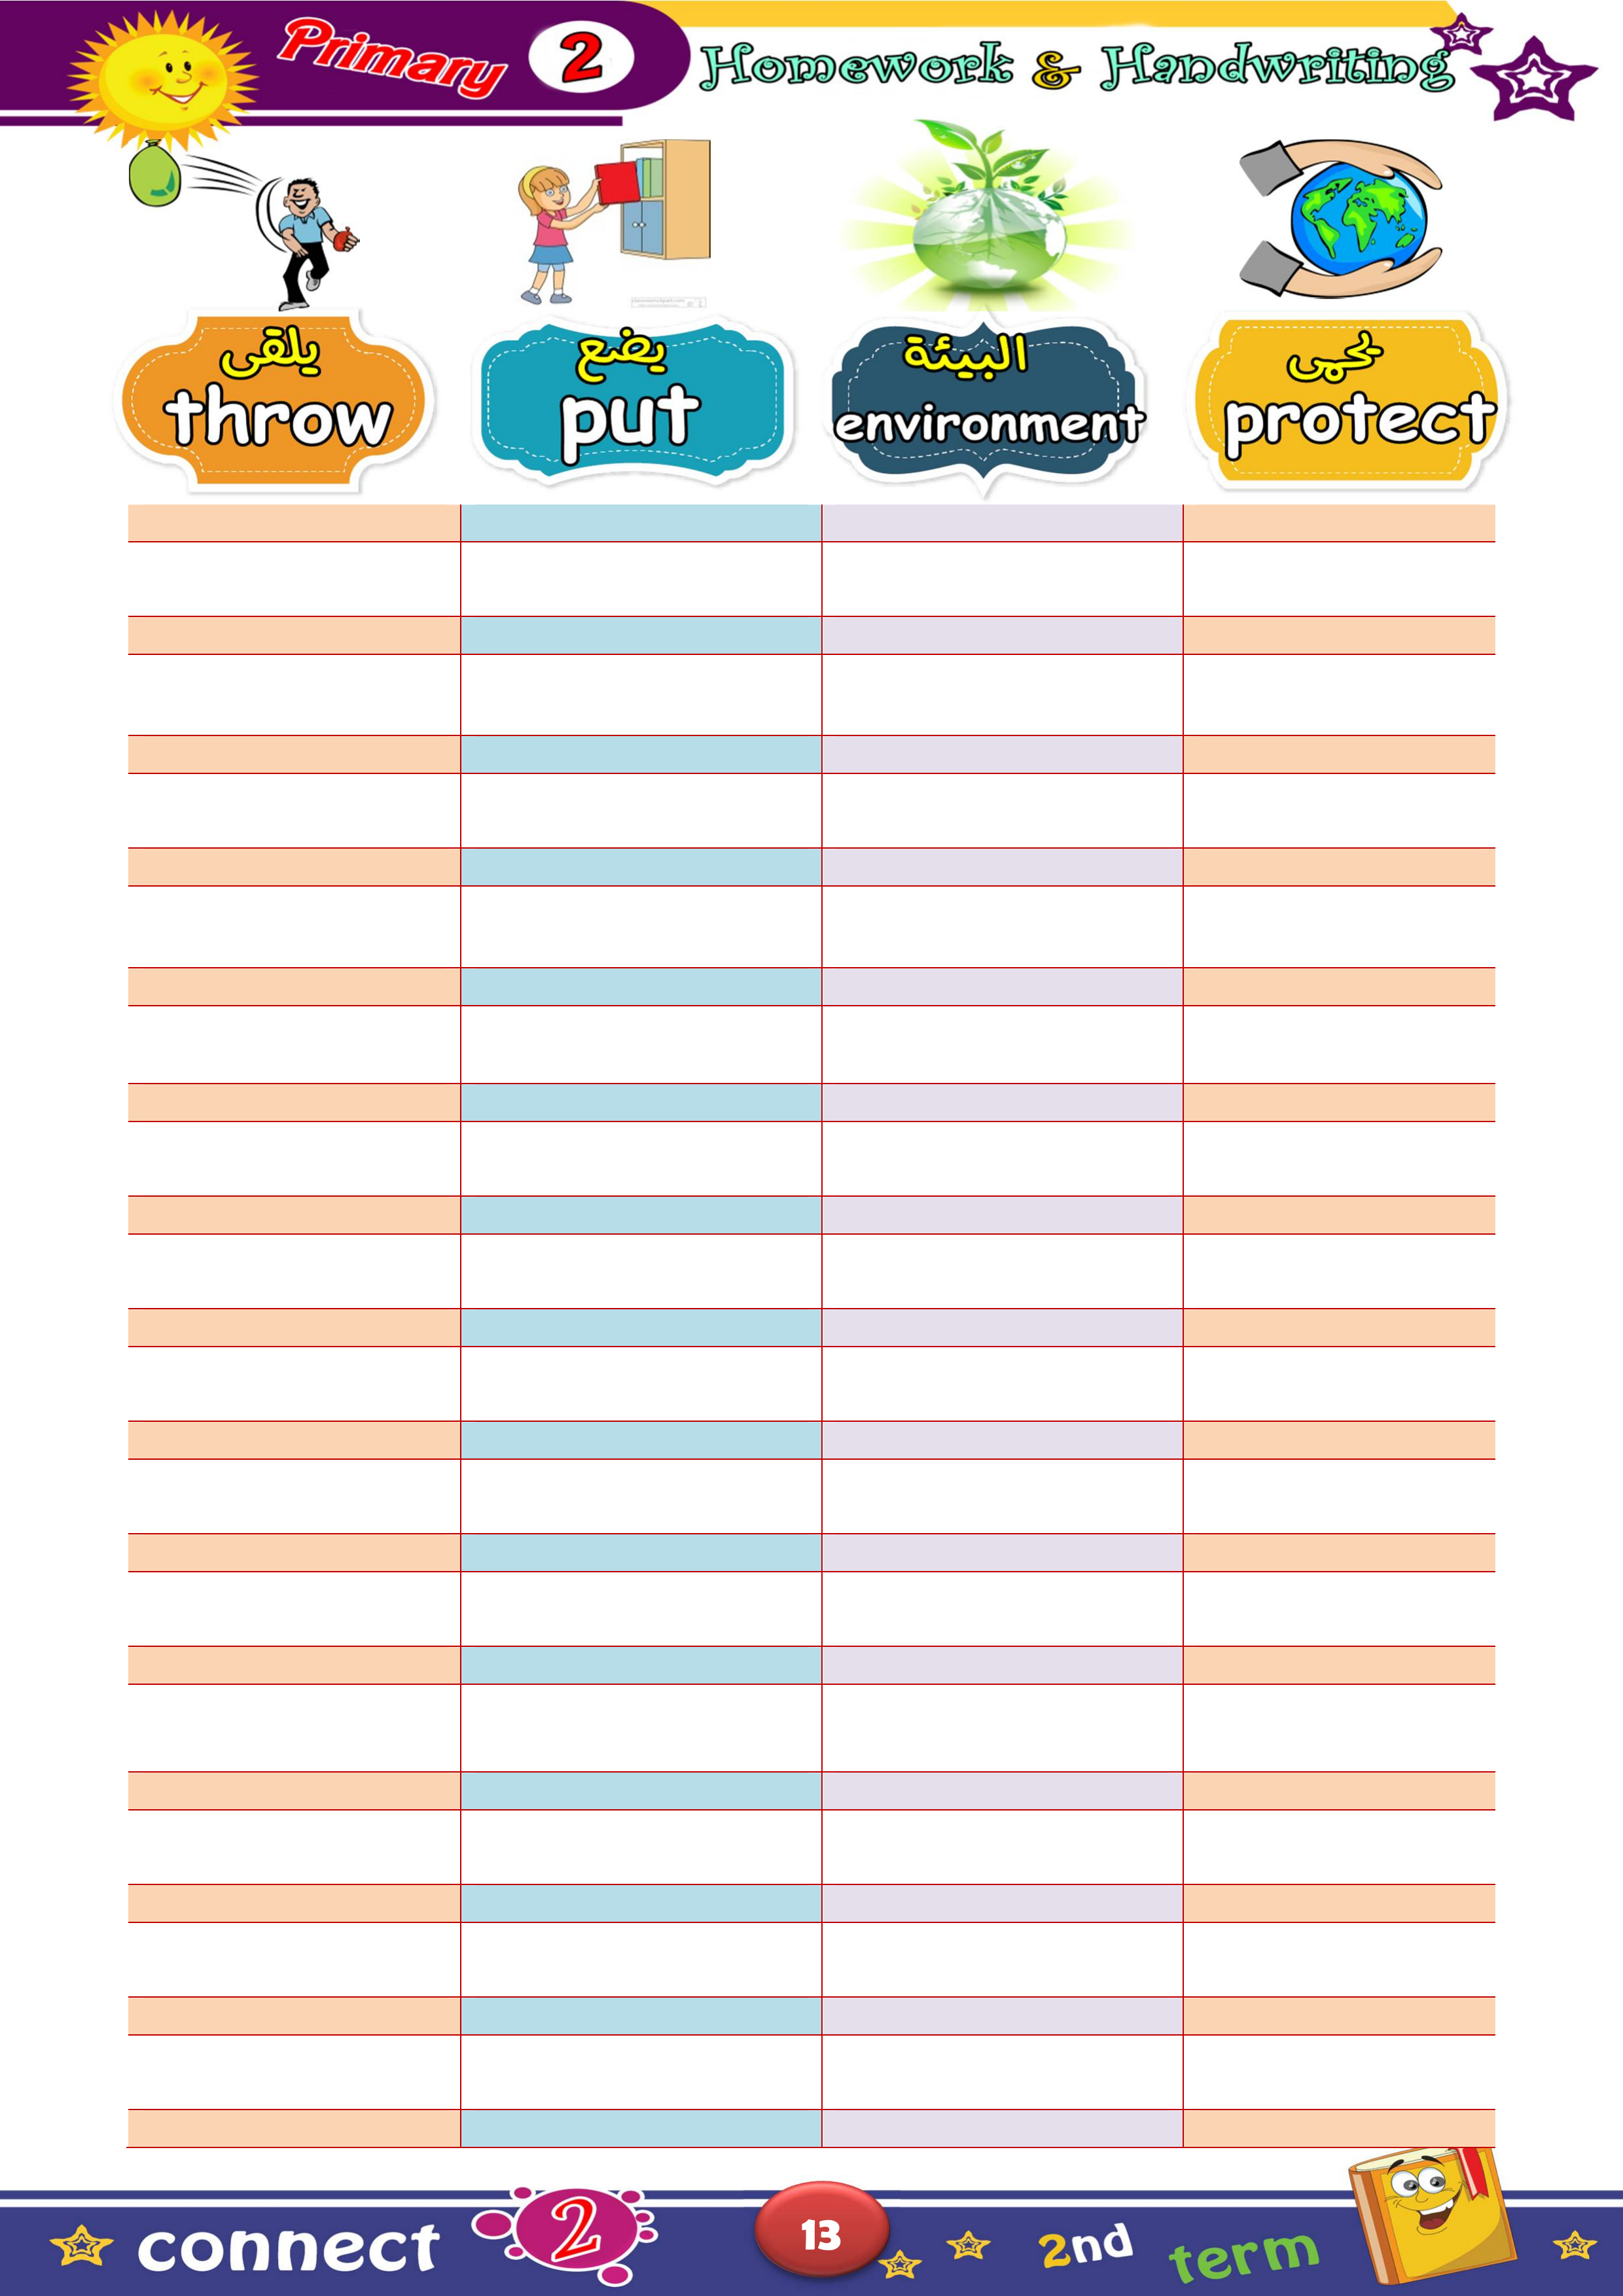 Primary 2 Homework & Handwriting
يلقى
throw
يضع
put
البيئة
environment
يحمى
protect
connect 2 13 2nd term